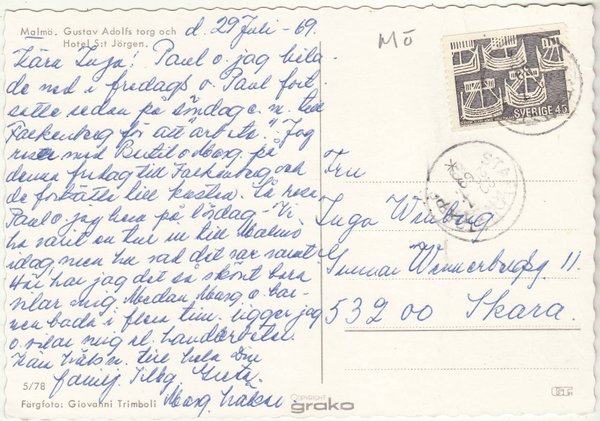 Malmö. Gustav Adolfs torg och
Hotel S:t Jörgen.
d. 29 Juli -69.
Kära Inga! Paul o. jag bila
de ned i fredags o. Paul fort
satte sedan på söndag e. m. till
Falkenberg för att "arbeta". Jag
reser med Bertil o Marg. på
denna fredag till Falkenberg och
de fortsätter till kusten. Så reser
Paul o. jag hem på lördag. Vi
ha varit en tur in till Malmö
idag men hu vad det var varmt
Här har jag det så skönt bara
vilar mig. Medan Marg. o. bar-
nen bada i flera tim. ligger jag
o. vilar mig el. handarbetar.
Kära hälsn. till hela Din
familj. Tillg. Greta
Marg. hälsar
5/78
Färgfoto: Giovanni Trimboli
COPYRIGHT
grako
Mö
SVERIGE 45
Fru
Inga Winbog
Gunnar Wennerbergsg 11
532 00 Skara.